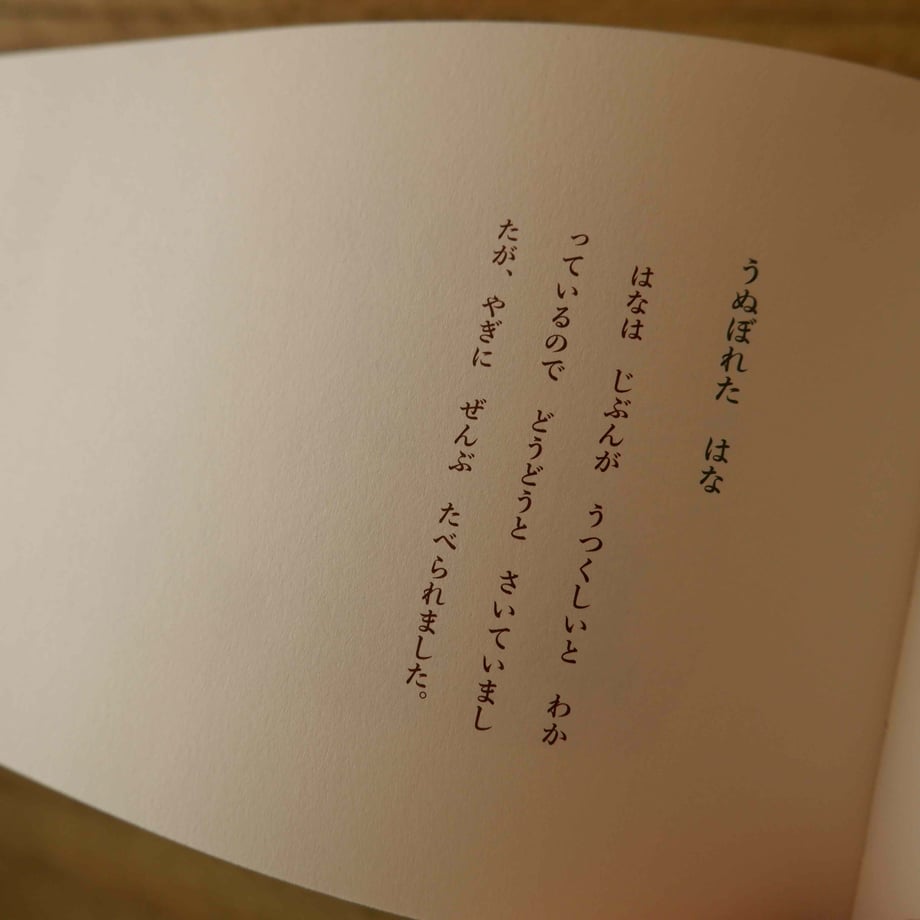 うぬぼれた　はな
はなは　じぶんが　うつくしいと　わか
っているので　どうどうと　さいていまし
たが、やぎに　ぜんぶ　たべられました。